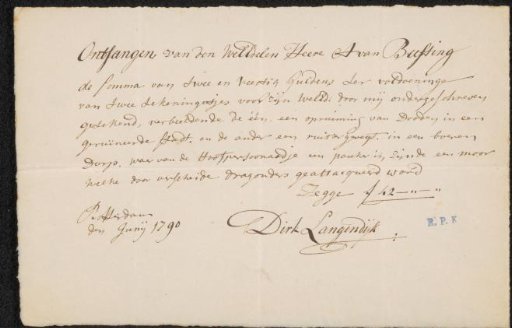 Ontfangen van den WelEdelen Heere A van Beefting
de somma van twee en veertig Guldens ter voldoeninge
van twee tekeningetjes voor zijn WelEd: door mij ondergeschreven
getekend, verbeeldende de één, een opruiming van Dooden in een
geruineerde stadt, en de ander een ruiter in een boeren
Dorp, waar van de Hoofdpersonaadje een pauker is, zijnde een moor
welke door verscheide dragonders geattacqueerd word
Zegge f 42 -"-"
Rotterdam
den Junij 1790
Dirk Langendijk
R.P.K